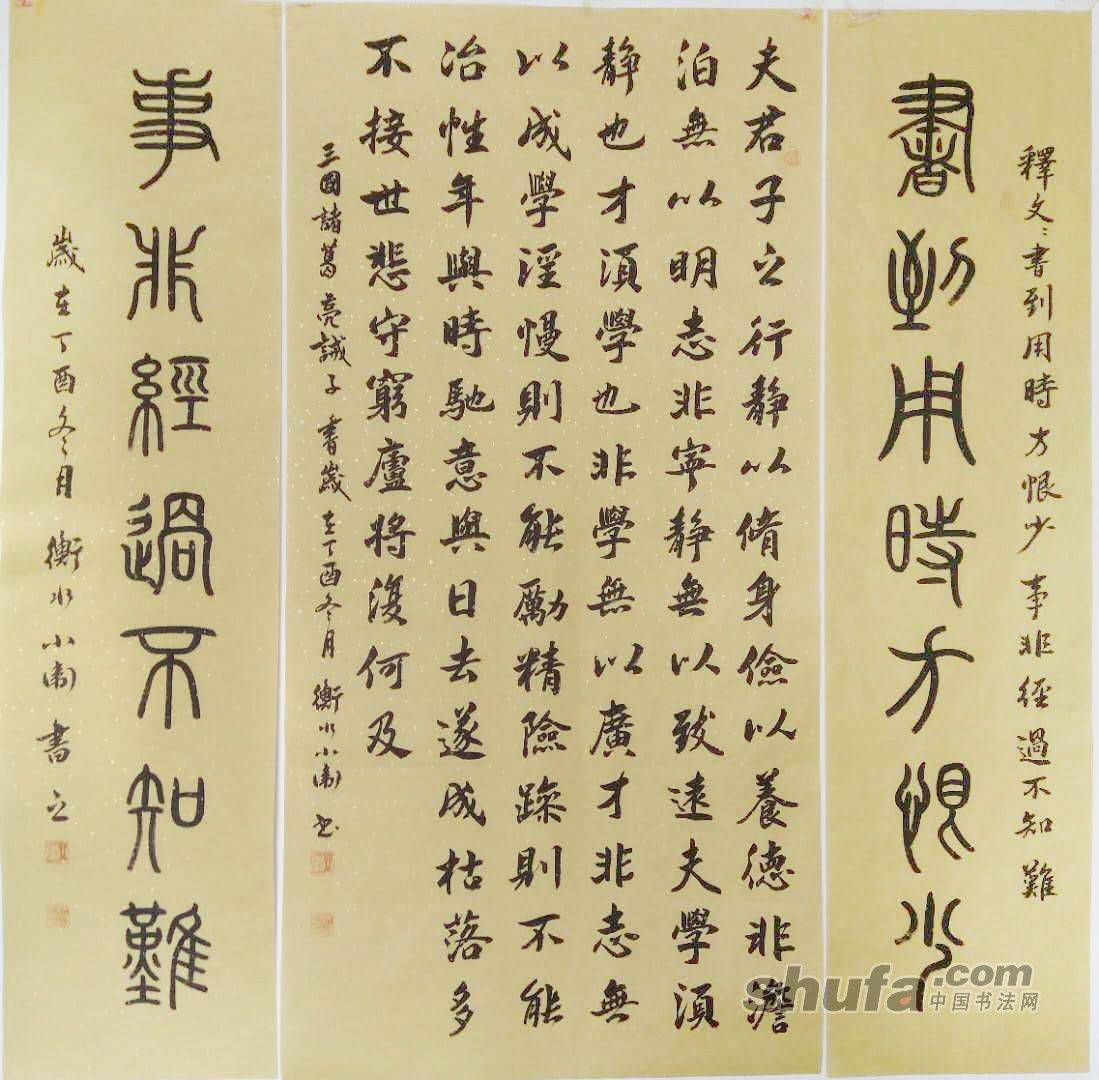 釋文：書到用時方恨少 事非經過不知難
書到用時方恨少
夫君子之行静以脩身儉以養德非澹
泊無以明志非寧静無以致遠夫學須
静也才須學也非學無以廣才非志無
以成學淫慢則不能勵精險躁則不能
冶性年與時馳意與日去遂成枯落多
不接世悲守窮廬將復何及
三國諸葛亮誡子書歲在丁酉冬月 衡水小書
事非經過不知難
歲在丁酉冬月 衡水小書之
shufa.com
中国书法网